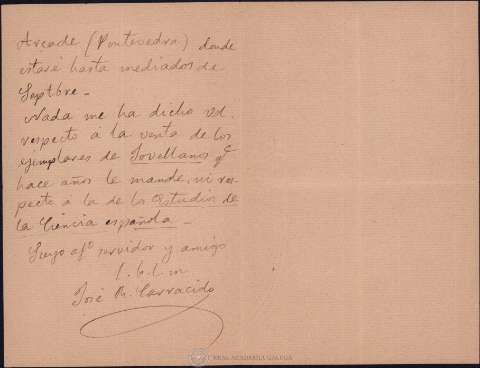 Arcade (Pontevedra) donde
estaré hasta mediados de
Septbre.
Nada me ha dicho Vd.
respecto á la venta de los
ejemplares de Jovellanos qe
hace años le mandé, ni res-
pecto á la de los Estudios de
la Ciencia española.
Suyo afo servidor y amigo
José R. Carracido
REAL ACADEMIA GALEGA